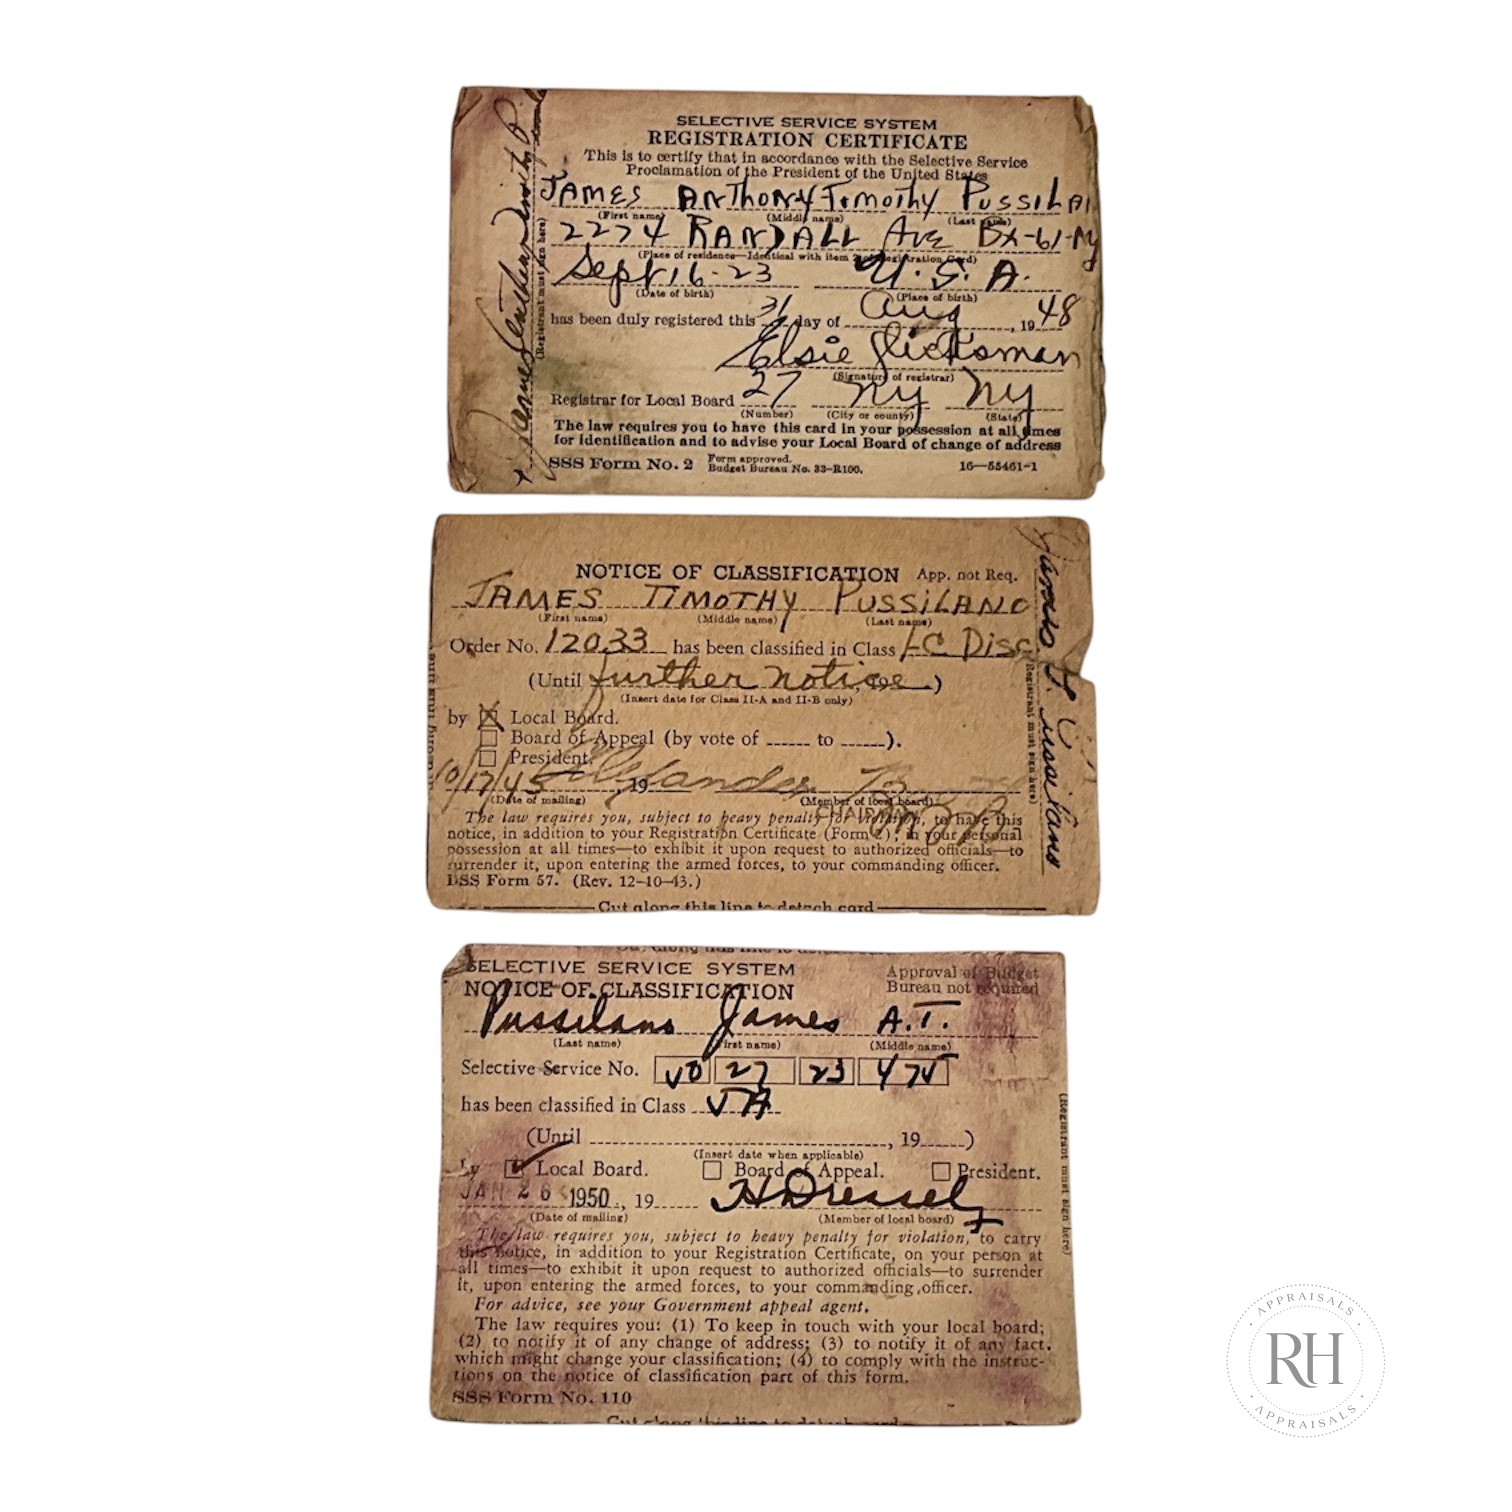 SELECTIVE SERVICE SYSTEM
REGISTRATION CERTIFICATE
This is to certify that in accordance with the Selective Service
Proclamation of the President of the United States
JAMES ANTHONY TIMOTHY PUSSILA
(First name) (Middle name) (Last name)
2274 RANDALL AVE BX-61-NY
(Place of residence—Identical with item 2 of Registration Card)
Sept 16-23 U.S.A.
(Date of birth) (Place of birth)
has been duly registered this 31 day of Aug, 1948
Elsie Glicksman
(Signature of registrar)
Registrar for Local Board 27 NY NY
(Number) (City or county) (State)
The law requires you to have this card in your possession at all times
for identification and to advise your Local Board of change of address
SSS Form No. 2 Form approved. Budget Bureau No. 33-R100. 16—55461-1
(Registrant must sign here)
NOTICE OF CLASSIFICATION App. not Req.
JAMES TIMOTHY PUSSILANO
(First name) (Middle name) (Last name)
Order No. 12033 has been classified in Class I-C Disc
(Until further notice, 19 )
(Insert date for Class II-A and II-B only)
by Local Board.
Board of Appeal (by vote of to ).
President.
10/17/45, 19 Alexander
(Date of mailing) (Member of local board)
CHAIRMAN
The law requires you, subject to heavy penalty for violation, to have this
notice, in addition to your Registration Certificate (Form 2), in your personal
possession at all times—to exhibit it upon request to authorized officials—to
surrender it, upon entering the armed forces, to your commanding officer.
DSS Form 57. (Rev. 12-10-43.)
Cut along this line to detach card
James T. Pussilano
(Registrant must sign here)
SELECTIVE SERVICE SYSTEM Approval of Budget
NOTICE OF CLASSIFICATION Bureau not required
Pussilano James A.T.
(Last name) (First name) (Middle name)
Selective Service No. 50 27 23 475
has been classified in Class 5A
(Until , 19 )
(Insert date when applicable)
by Local Board. Board of Appeal. President.
JAN 26 1950, 19 H Dressel
(Date of mailing) (Member of local board)
The law requires you, subject to heavy penalty for violation, to carry
this notice, in addition to your Registration Certificate, on your person at
all times—to exhibit it upon request to authorized officials—to surrender
it, upon entering the armed forces, to your commanding officer.
For advice, see your Government appeal agent.
The law requires you: (1) To keep in touch with your local board;
(2) to notify it of any change of address; (3) to notify it of any fact
which might change your classification; (4) to comply with the instruc-
tions on the notice of classification part of this form.
SSS Form No. 110
Cut along this line to detach card
(Registrant must sign here)
APPRAISALS
RH
APPRAISALS